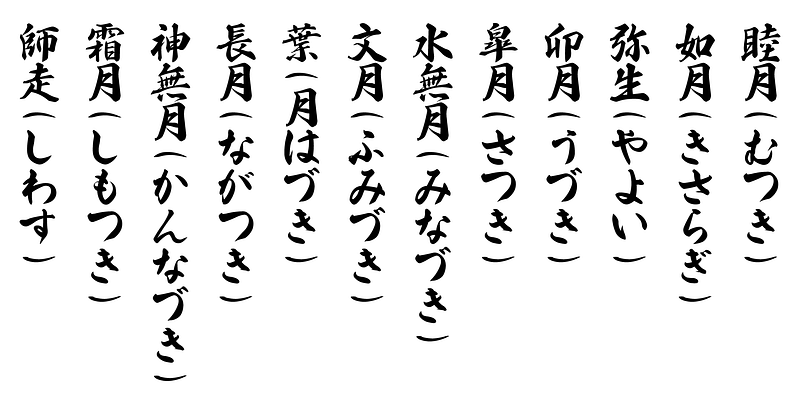 睦月(むつき)
如月(きさらぎ)
弥生(やよい)
卯月(うづき)
皐月(さつき)
水無月(みなづき)
文月(ふみづき)
葉(月はづき)
長月(ながつき)
神無月(かんなづき)
霜月(しもつき)
師走(しわす)